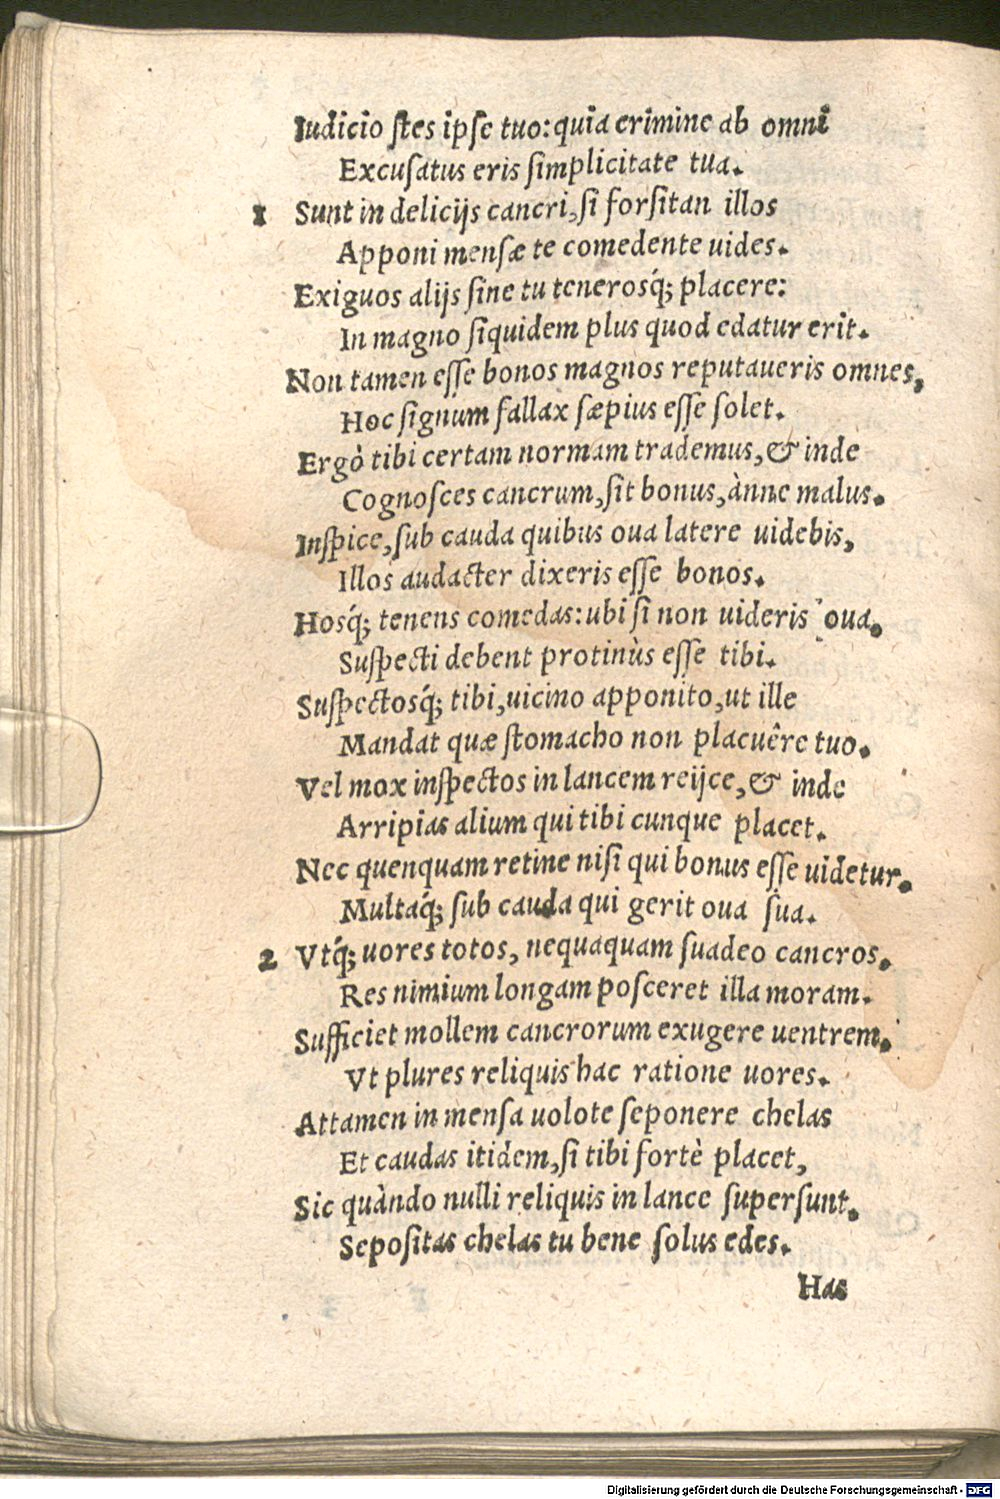 Iudicio ſtes ipſe tuo: quia crimine ab omni
Excuſatus eris ſimplicitate tua.
1 Sunt in delicijs cancri, ſi forſitan illos
Apponi menſæ te comedente uides.
Exiguos alijs ſine tu tenerosq́; placere:
In magno ſiquidem plus quod edatur erit.
Non tamen eſſe bonos magnos reputaueris omnes,
Hoc ſignum fallax ſæpius eſſe ſolet.
Ergò tibi certam normam trademus, & inde
Cognoſces cancrum, ſit bonus, ànne malus.
Inſpice, ſub cauda quibus oua latere uidebis,
Illos audacter dixeris eſſe bonos.
Hosq́; tenens comedas: ubi ſi non uideris oua.
Suſpecti debent protinùs eſſe tibi.
Suſpectosq́; tibi, uicino apponito, ut ille
Mandat quæ ſtomacho non placuêre tuo.
Vel mox inſpectos in lancem reijce, & inde
Arripias alium qui tibi cunque placet.
Nec quenquam retine niſi qui bonus eſſe uidetur.
Multaq́; ſub cauda qui gerit oua ſua.
2 Vtq́; uores totos, nequaquam ſuadeo cancros.
Res nimium longam poſceret illa moram.
Sufficiet mollem cancrorum exugere uentrem.
Vt plures reliquis hac ratione uores.
Attamen in menſa uolo te ſeponere chelas
Et caudas itidem, ſi tibi fortè placet,
Sic quàndo nulli reliquis in lance ſuperſunt.
Sepoſitas chelas tu bene ſolus edes.
Has
Digitalisierung gefördert durch die Deutsche Forschungsgemeinschaft - DFG